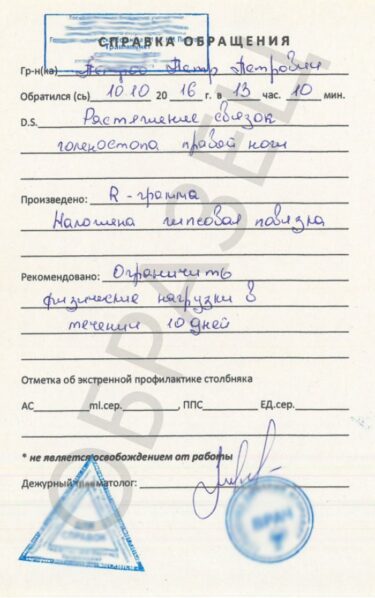 СПРАВКА ОБРАЩЕНИЯ
Гр-н(ка) Петров Петр Петрович
Обратился (сь) 10.10 2016 г. в 13 час. 10 мин.
D.S. Растяжение связок
голеностопа правой ноги
Произведено: R-грамма
Наложена гипсовая повязка
Рекомендовано: Ограничить
физические нагрузки в
течении 10 дней
Отметка об экстренной профилактике столбняка
АС ml.сер. , ППС ЕД.сер.
* не является освобождением от работы
Дежурный травматолог:
ДЛЯ СПРАВОК
ВРАЧ
ОБРАЗЕЦ